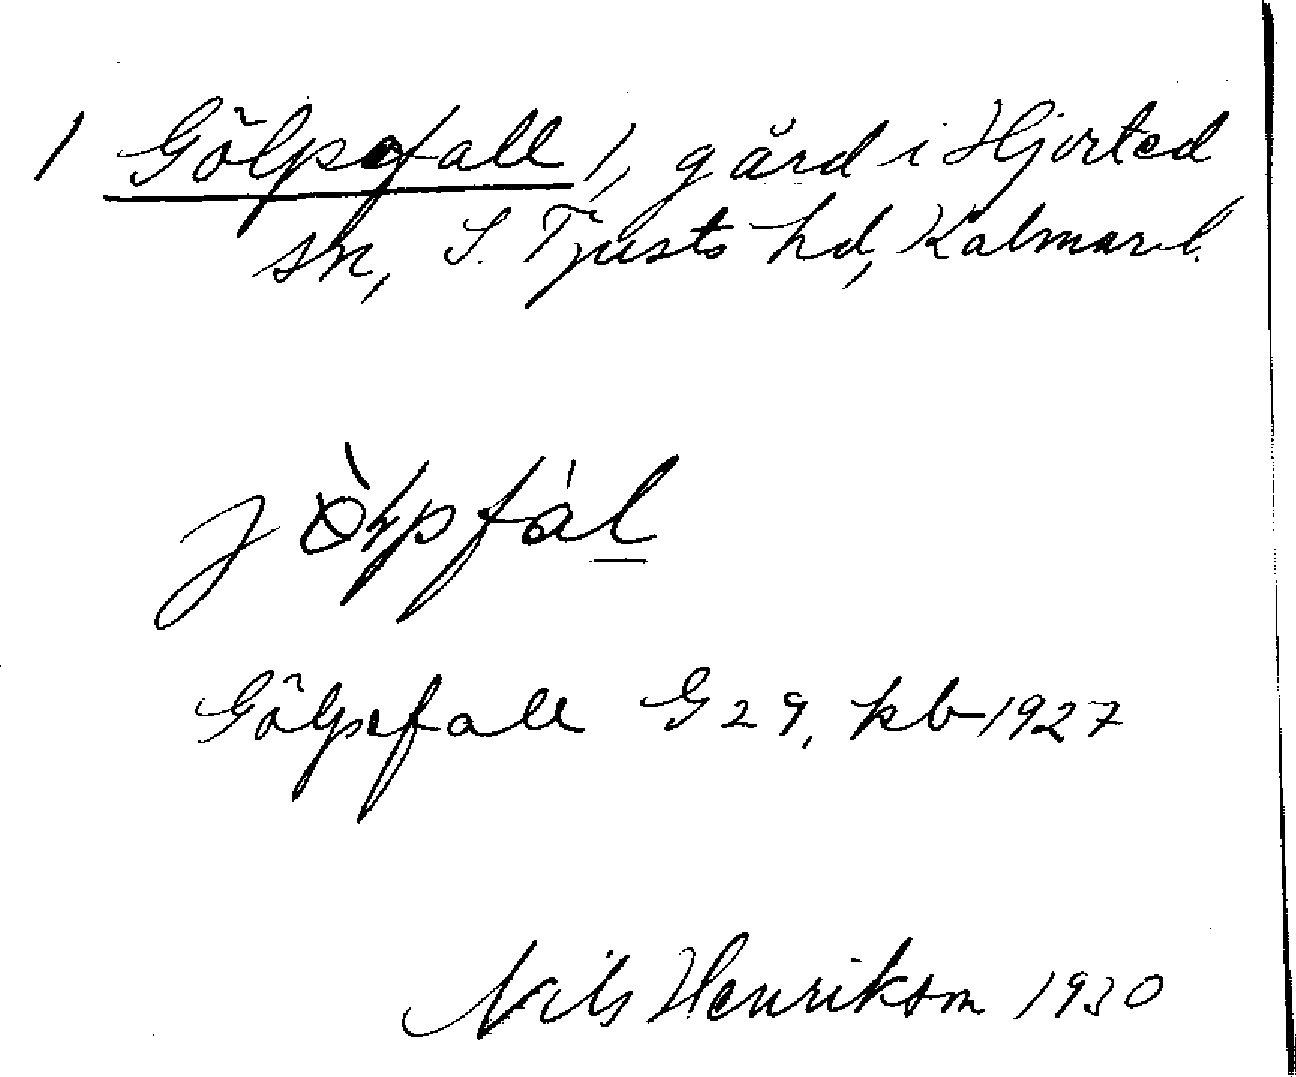 1 Gölpefall 1, gård i Hjorted
sn, S. Tjusts hd, Kalmar l.
Gölpefall G 29, kb 1927
Nils Henrikson 1930